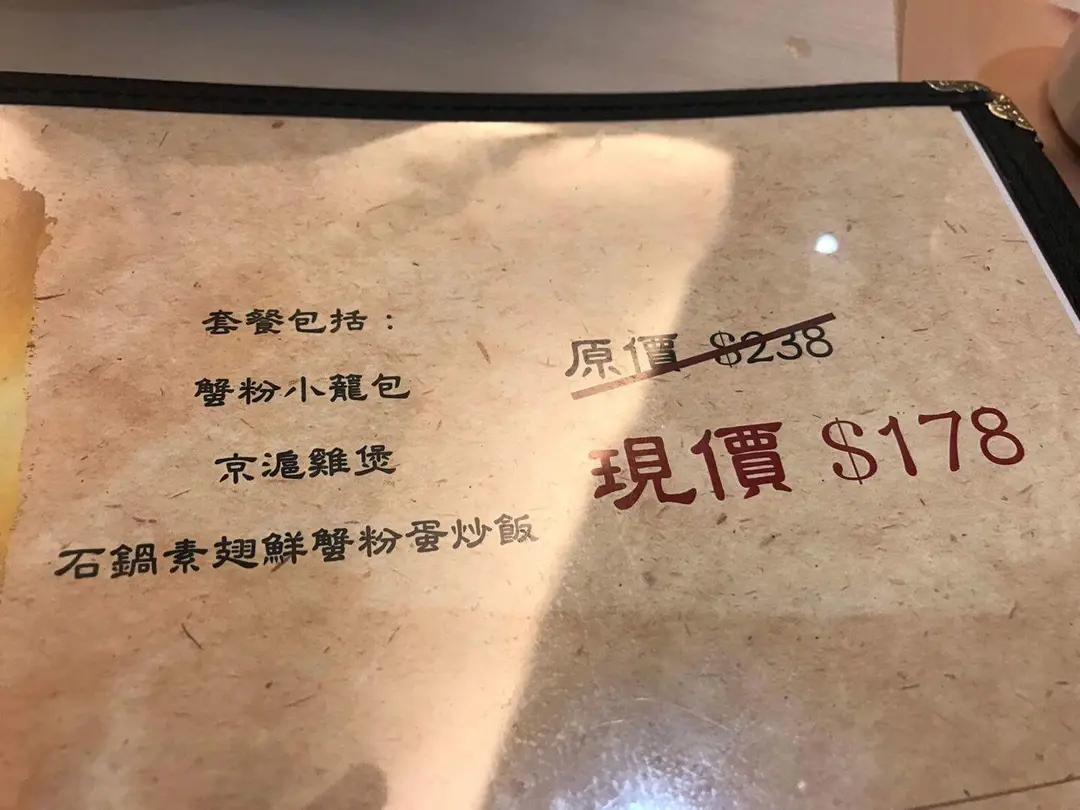 套餐包括：
蟹粉小籠包
京滬雞煲
石鍋素翅鮮蟹粉蛋炒飯
原價 $238
現價 $178